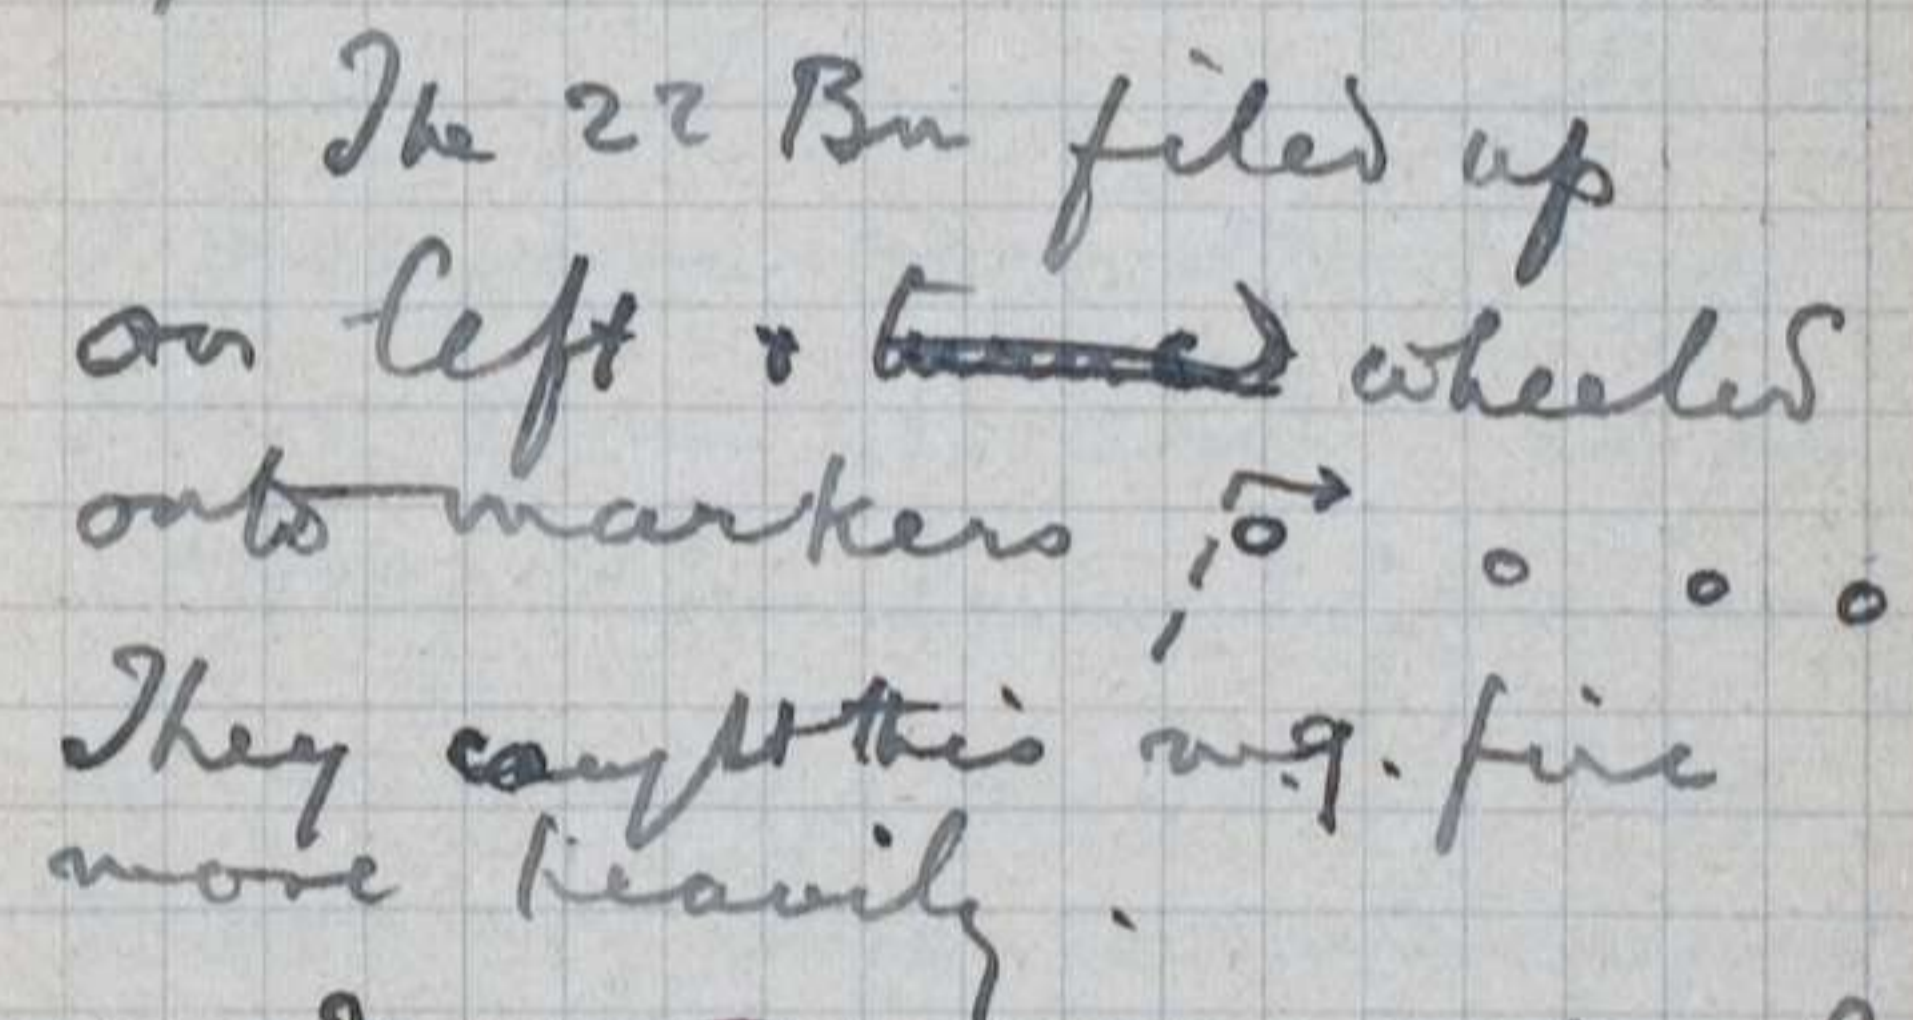 The 22 Bn filed up
on left & wheeled
onto markers
They caught this m.g. fire
more heavily.